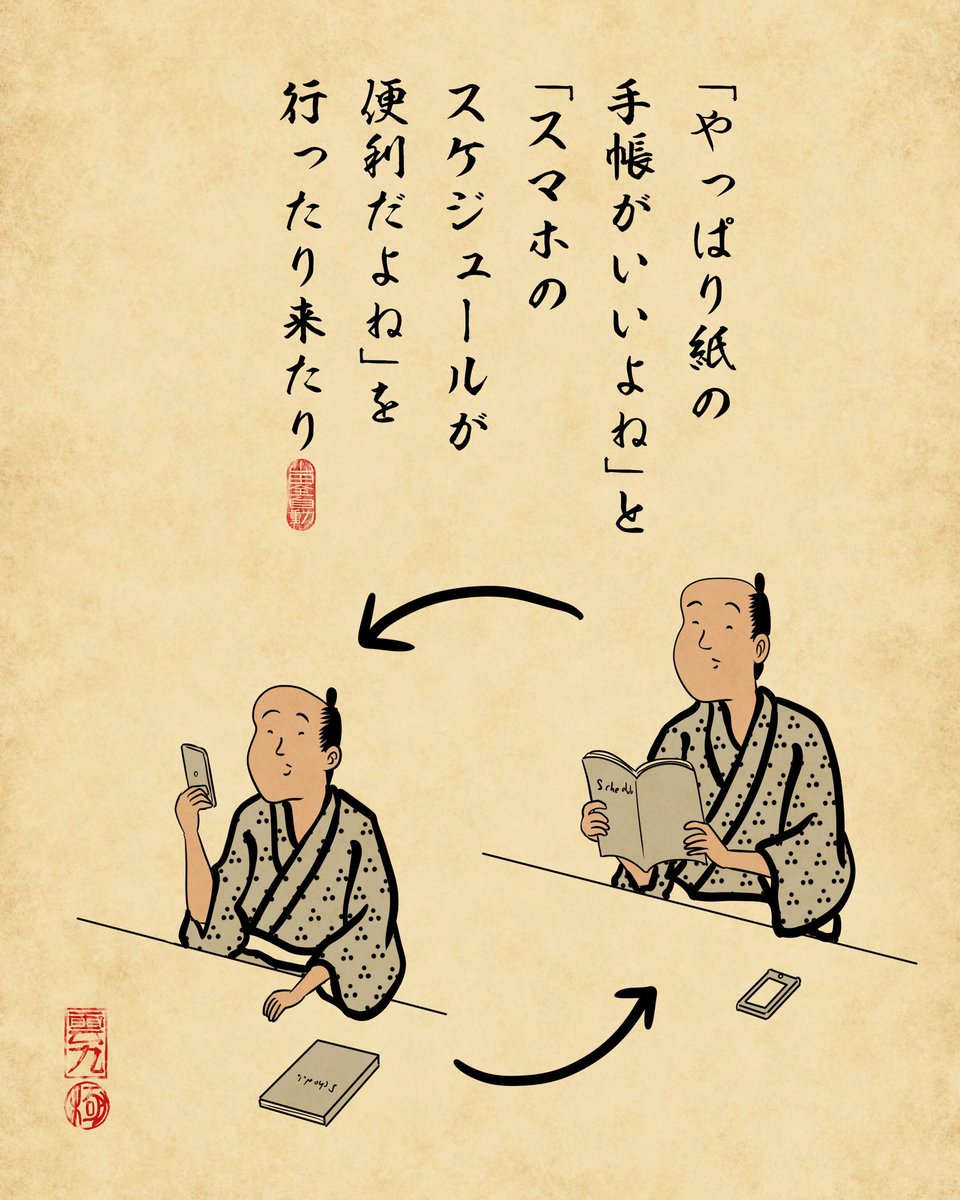 「やっぱり紙の
手帳がいいよね」と
「スマホの
スケジュールが
便利だよね」を
行ったり来たり